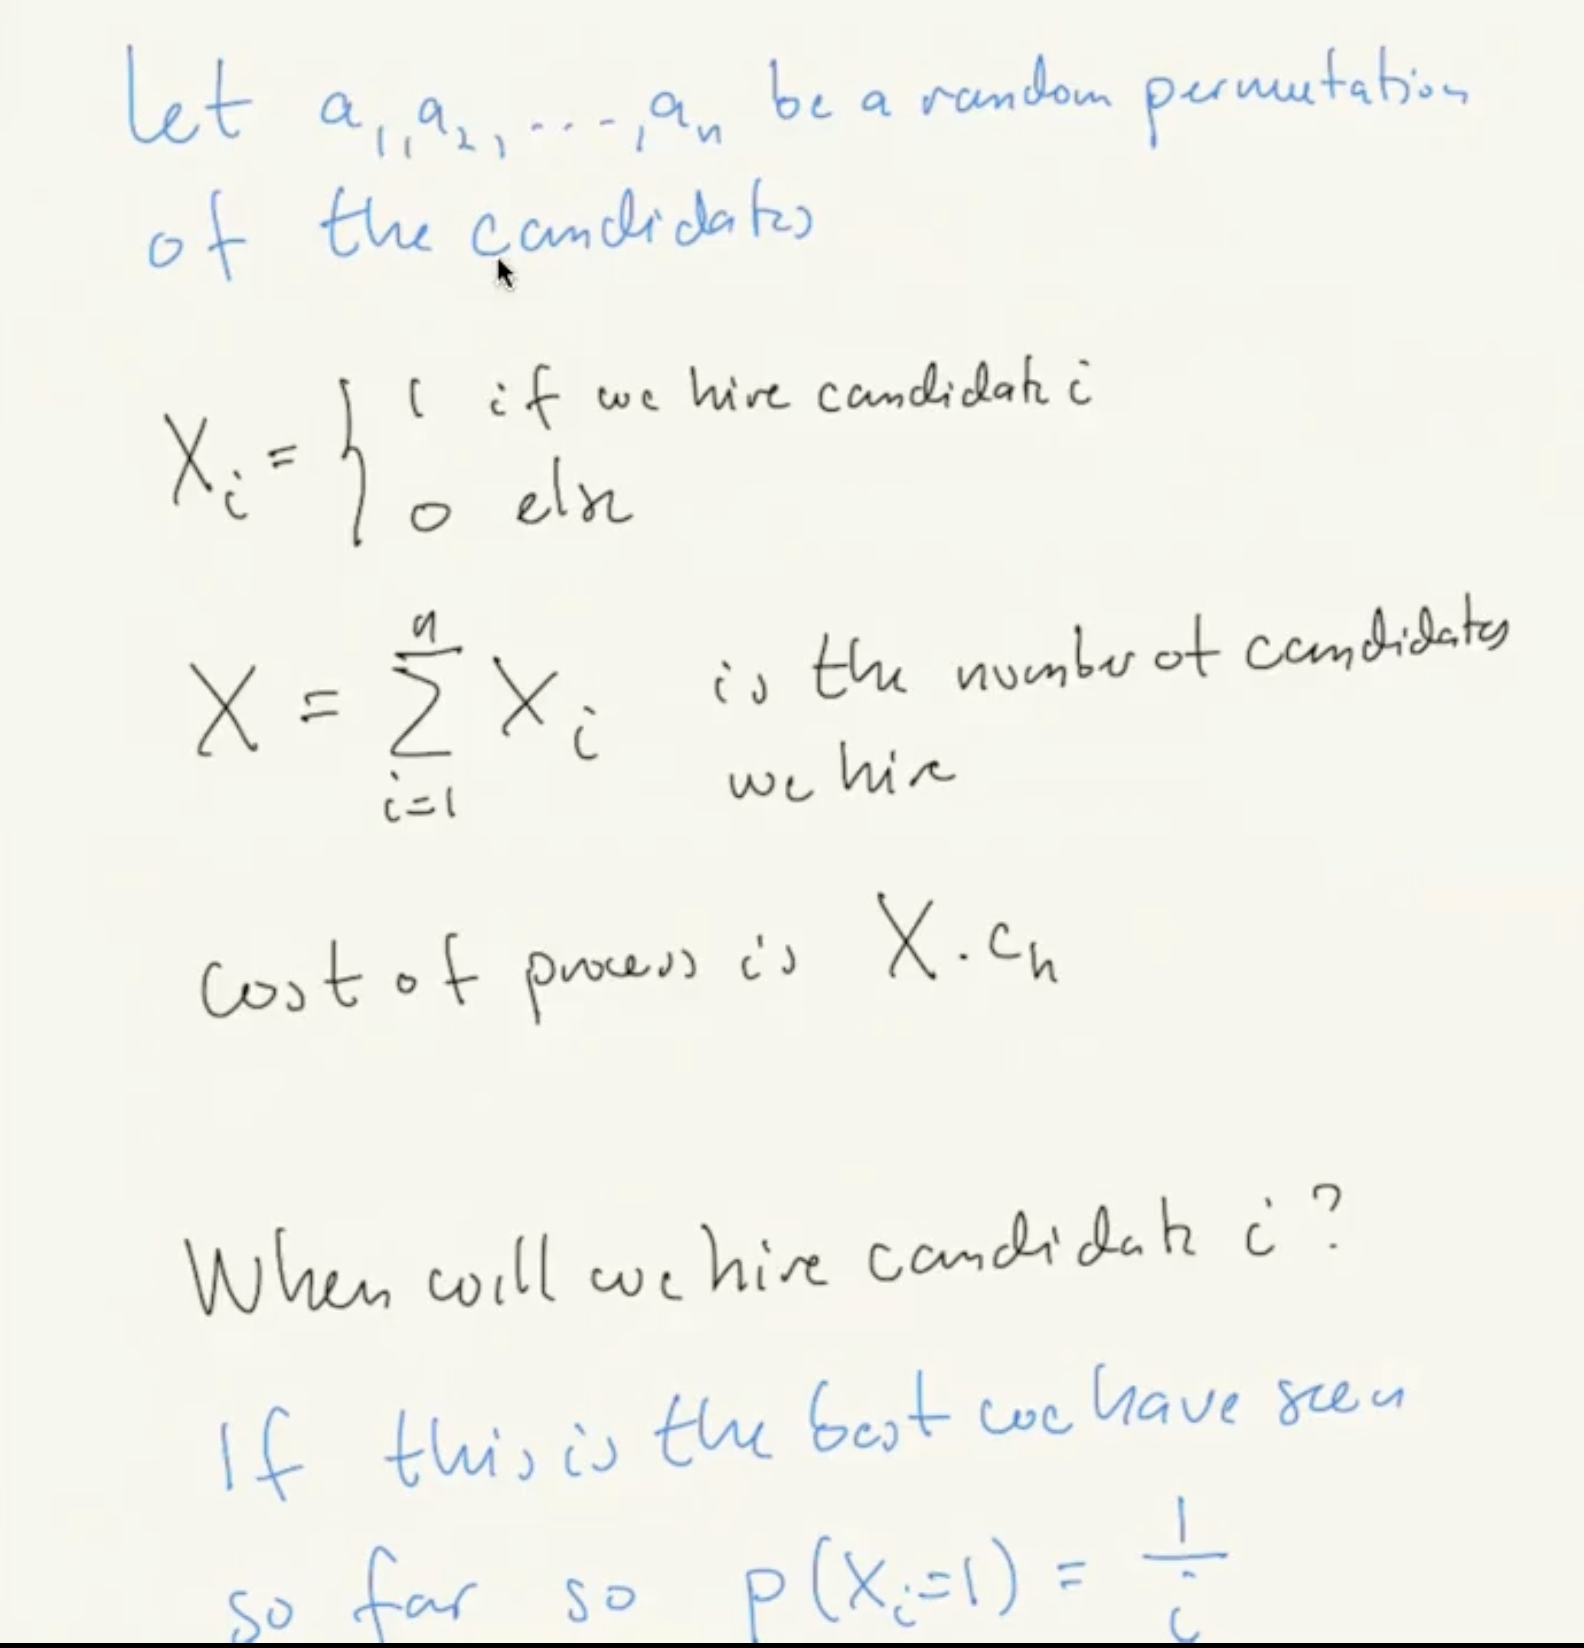 Let a₁, a₂, ..., aₙ be a random permutation
of the candidates
Xᵢ = { 1 if we hire candidate i
0 else
X = ∑ᵢ₌₁ⁿ Xᵢ is the number of candidates
we hire
Cost of process is X · cₕ
When will we hire candidate i?
If this is the best we have seen
so far so p(Xᵢ=1) = 1/i